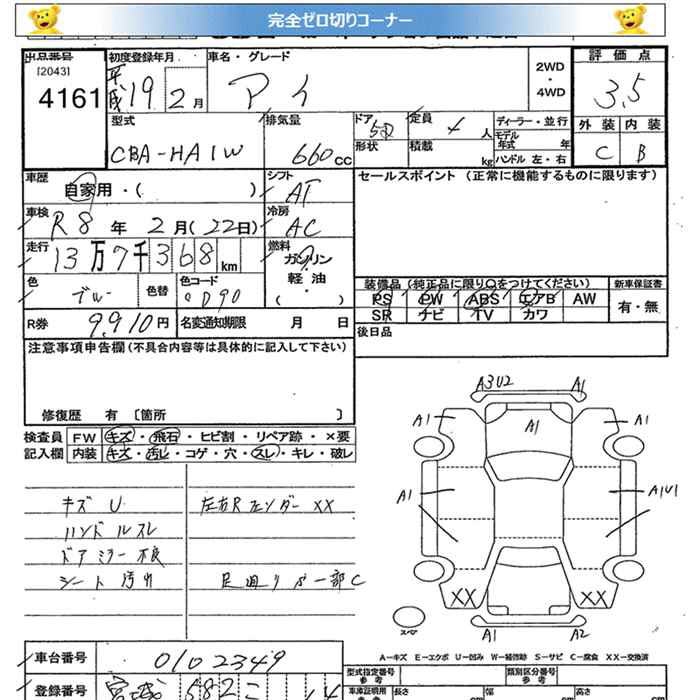 完全ゼロ切りコーナー
出品番号
[2043]
4161
初度登録年月
平成19 2月
車名・グレード
アイ
2WD
・
4WD
評価点
3.5
外装 内装
C B
型式
CBA-HA1W
排気量
660cc
ドア
5D
形状
定員
4人
積載
kg
ディーラー・並行
モデル年式 年
ハンドル 左・右
車歴
自家用・( )
シフト
AT
車検
R8年2月(22日)
冷房
AC
走行
13万7千368km
燃料
ガソリン
軽油
( )
色
ブルー
色替
色コード
D90
R券
9,910円
名変通知期限 月 日
セールスポイント (正常に機能するものに限ります)
装備品(純正品に限り○をつけてください)
PS PW ABS エアB AW
SR ナビ TV カワ
新車保証書
有・無
後日品
注意事項申告欄(不具合内容等は具体的に記入して下さい)
修復歴 有 [箇所 ]
検査員
記入欄
FW キズ・飛石・ヒビ割・リペア跡・×要
内装 キズ・汚レ・コゲ・穴・スレ・キレ・破レ
キズ U
ハンドルスレ
ドアミラー不良
シート汚れ
左右Rフェンダー XX
足廻りパー部C
A3U2 A1
A1 A1 A1
A1 A1U1
XX XX
スペア
A1 A2
A-キズ E-エクボ U-凹み W-補修跡 S-サビ C-腐食 XX-交換済
車台番号
0102349
登録番号
宮城 682
型式指定番号
参考
類別区分番号
参考
車庫証明用
参考
長さ
cm
幅
cm
高さ
cm